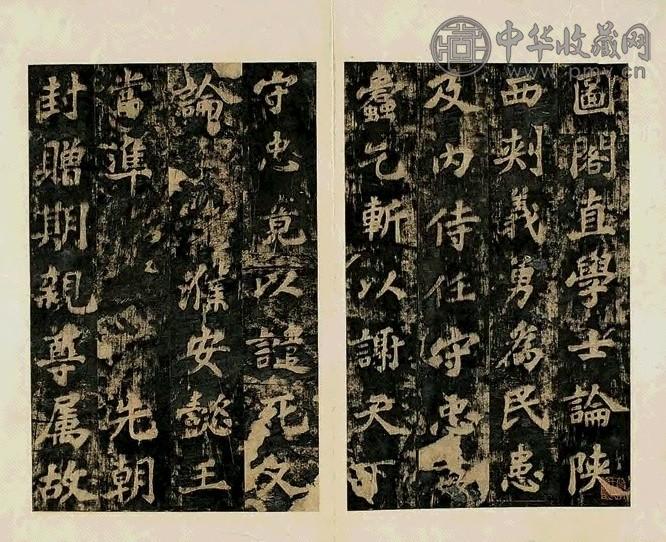 中华收藏网
圖閣直學士論陝
西刺義勇為民患
及内侍任守忠
蠹乞斬以謝天下
守忠竟以譴死又
論濮安懿王
當準先朝
封贈期親尊屬故